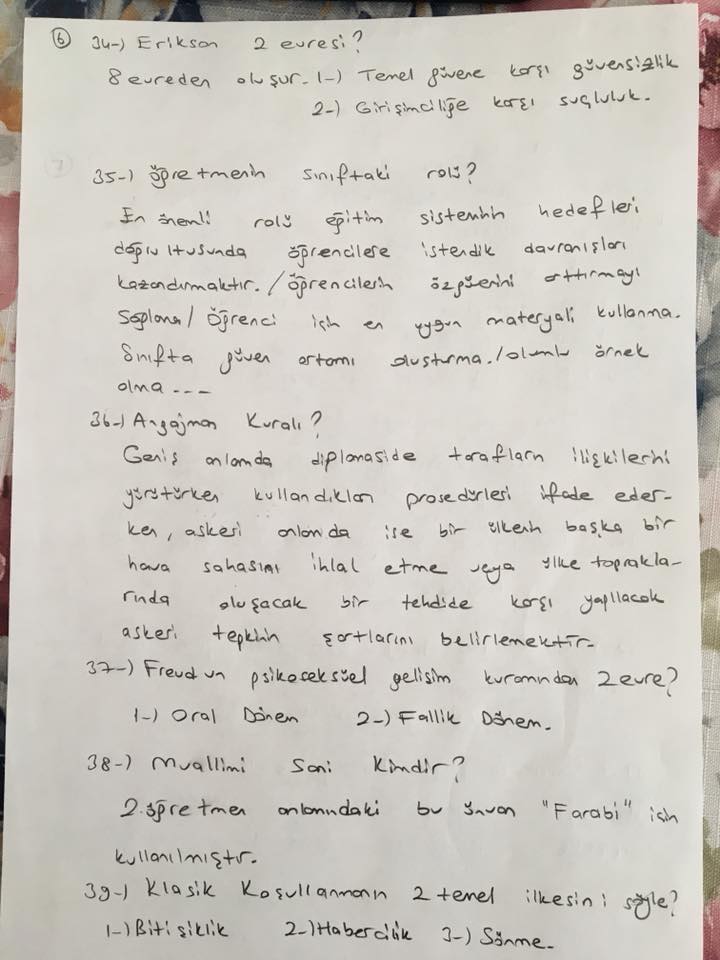 6
34-) Erikson 2 evresi?
8 evreden oluşur. 1-) Temel güvene karşı güvensizlik
2-) Girişimciliğe karşı suçluluk.
35-) öğretmenin sınıftaki rolü?
En önemli rolü eğitim sisteminin hedefleri
doğrultusunda öğrencilere istendik davranışları
kazandırmaktır. / öğrencilerin özgüvenini arttırmayı
Sağlama / öğrenci için en uygun materyali kullanma.
Sınıfta güven ortamı oluşturma. / olumlu örnek
olma ---
36-) Angajman Kuralı?
Geniş anlamda diplomaside tarafların ilişkilerini
yürütürken kullandıkları prosedürleri ifade eder-
ken, askeri anlamda ise bir ülkenin başka bir
hava sahasını ihlal etme veya ülke toprakla-
rında oluşacak bir tehdide karşı yapılacak
askeri tepkinin şartlarını belirlemektir.
37-) Freud un psikoseksüel gelişim kuramından 2 evre?
1-) Oral Dönem 2-) Fallik Dönem.
38-) Muallimi Sani Kimdir?
2. öğretmen anlamındaki bu ünvan "Farabi" için
kullanılmıştır.
39-) Klasik Koşullanmanın 2 temel ilkesini söyle?
1-) Bitişiklik 2-) Habercilik 3-) Sönme.